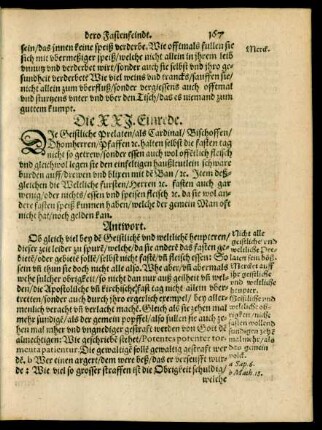 dero Fastenfeindt. 167
sein/das jnnen keine speiß verderbe. Wie offtmals füllen sie
sich mit vbermeßiger speiß/welche nicht allein in jhrem leib
vnnutz vnd verderbet wirt/sonder auch sie selbst vnd jhro ge-
sundheit verderbet? Wie viel weins vnd trancks/sauffen sie/
nicht allein zum vberfluß/sonder vergiessens auch offtmal
vnd sturtzens vnter vnd vber den Tisch/das es niemand zum
guttem kumpt.
Merck.
Die XXI. Einrede.
Die Geistliche Prelaten/als Cardinal/Bischoffen/
Dhomherren/Pfaffen ꝛc. halten selbst die fasten tag
nicht so getrew/sonder essen auch wol offtlich fleisch
vnd gleichwol legen sie den einfeltigen haußleutlein schwäre
burden auff/drewen vnd blixen mit dē Ban/ꝛc. Item deß-
gleichen die Weltliche fürsten/Herren ꝛc. fasten auch gar
wenig/oder nichts/essen speisen vnd fleisch ꝛc. da sie wol an-
dere fasten speiß kummen haben/welche der gemein Man offt
nicht hat/noch gelden kan.
Antwort.
Ob gleich viel bey dē Geistlichē vnd weltlichē heupteren/
dieser zeit leider zu spurē/welche/da sie anderē das fasten ge-
bietē/oder gebietē sollē/selbst nicht fastē/vn̄ fleisch essen: So
sein vn̄ thun sie doch nicht alle also. Whe aber/vn̄ abermals
wehe sulcher obrigkeit/so nicht dan nur auß geilheit vn̄ wol-
lust/die Apostolische vn̄ kirchische fast tag nicht allein vber-
trettten/sonder auch durch jhro ergerlich exempel/bey aller-
menlich veracht vn̄ verlacht mache. Gleich als sie zehen mal
mehr sundigē/als der gemein popffel/also sullen sie auch ze-
hen mal mher vnd vngnediger gestraft werden von Gott dē
almechtigen: Wie geschriebē stehet/Potentes potenter tor-
menta patientur. Die gewaltigē sollē gewaltig gestraft wer-
dē. b Wer einen arget/dem were beß/das er verseufft wur-
de: Wie viel so grosser straffen ist die Obrigkeit schuldig/
welche
Nicht alle
geistliche vn̄
weltliche Pre-
laten sein böß.
a Sap. 6.
b Math. 18.